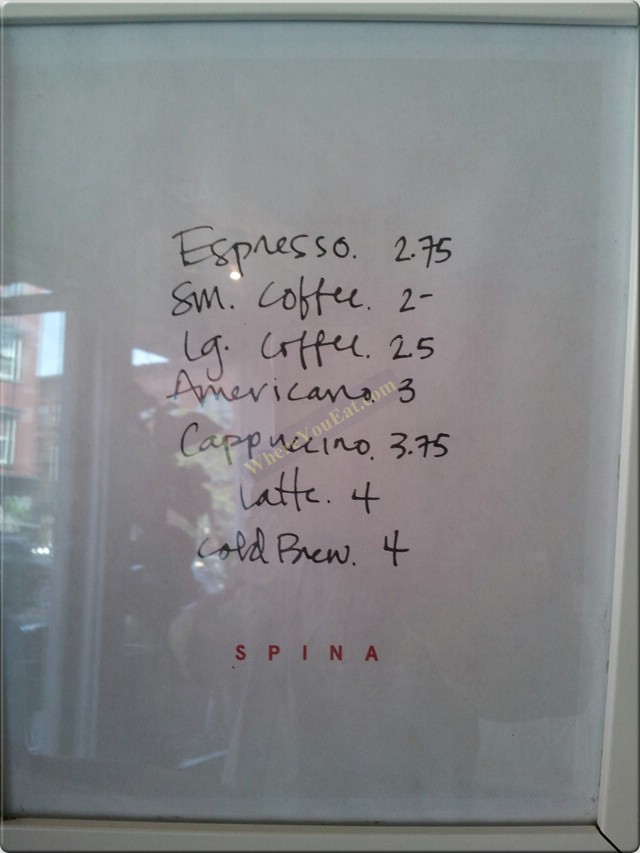 Espresso. 2.75
Sm. Coffee. 2-
Lg. Coffee. 25
Americano. 3
Cappuccino. 3.75
Latte. 4
Cold Brew. 4
WhereYouEat.com
SPINA